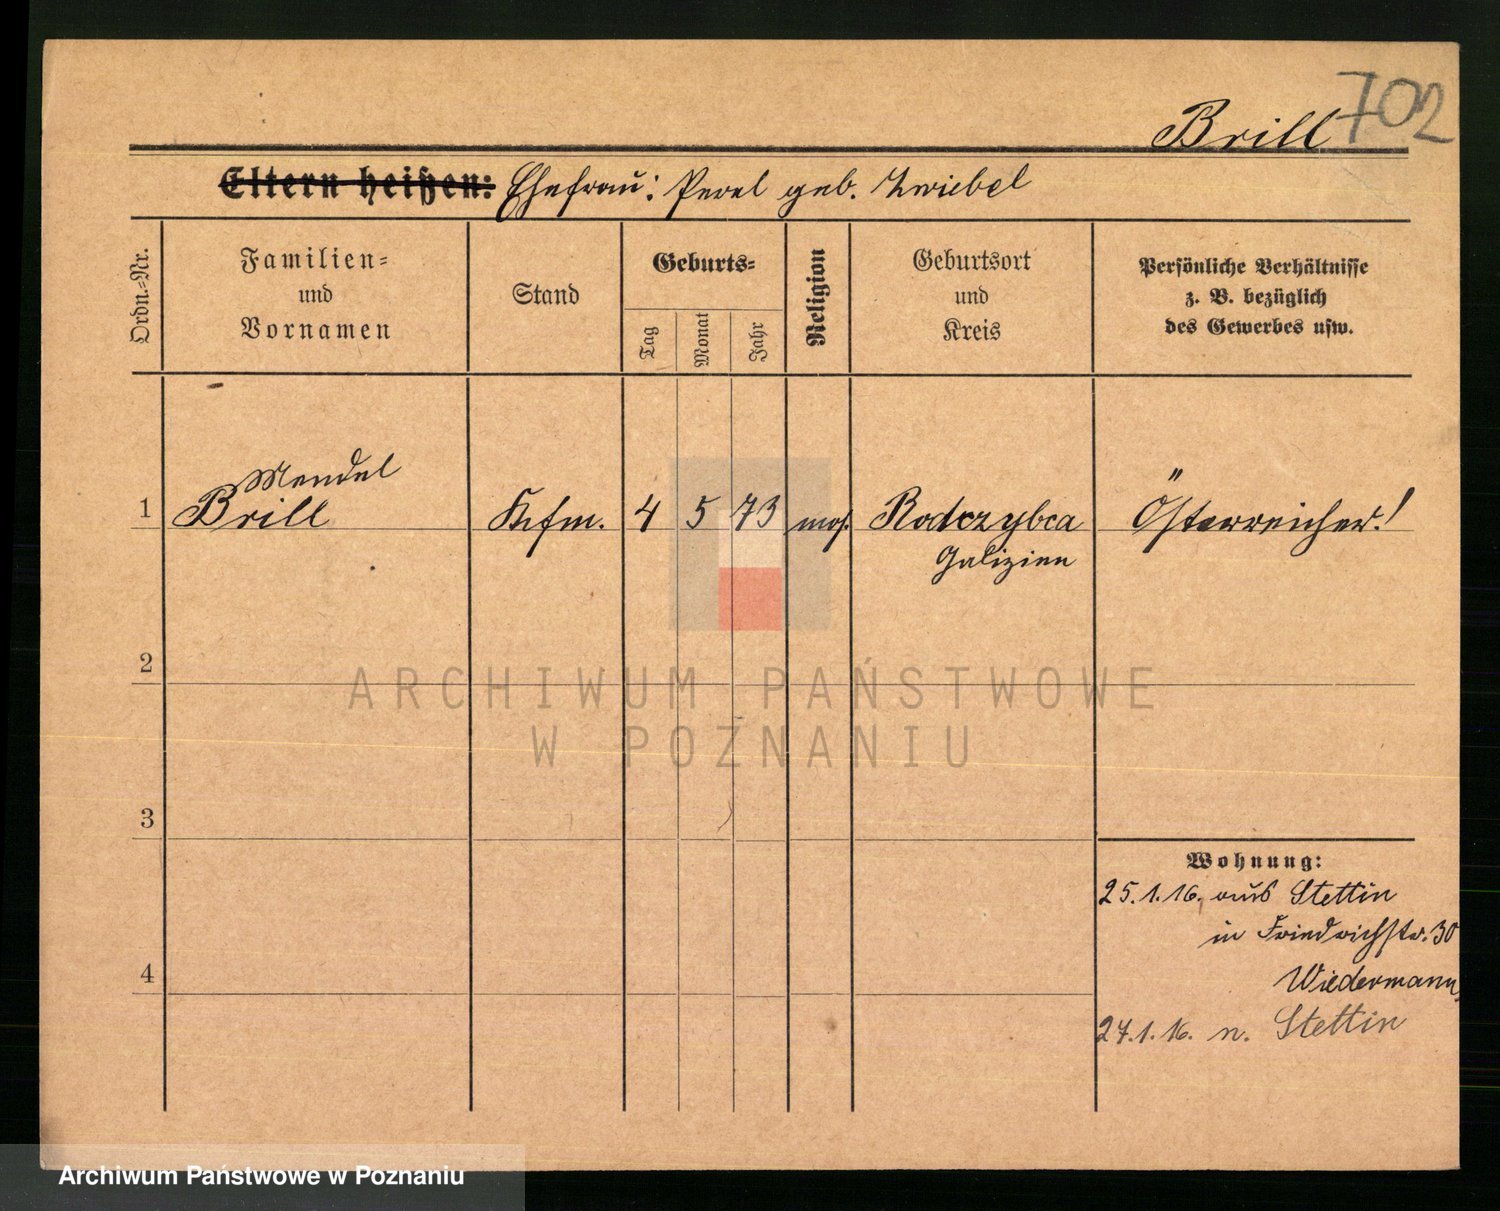 702
Brill
Eltern heißen: Ehefrau: Perel geb. Zwiebel
Ordn.-Nr.
Familien-
und
Vornamen
Stand
Geburts-
Tag
Monat
Jahr
Religion
Geburtsort
und
Kreis
Persönliche Verhältnisse
z. B. bezüglich
des Gewerbes usw.
Mendel
1 Brill Kfm. 4 5 73 mos. Radczybca Österreicher!
Galizien
2
ARCHIWUM PAŃSTWOWE
W POZNANIU
3
Wohnung:
25.1.16. aus Stettin
in Friedrichstr. 30
4
Wiedermann,
27.1.16. n. Stettin
Archiwum Państwowe w Poznaniu